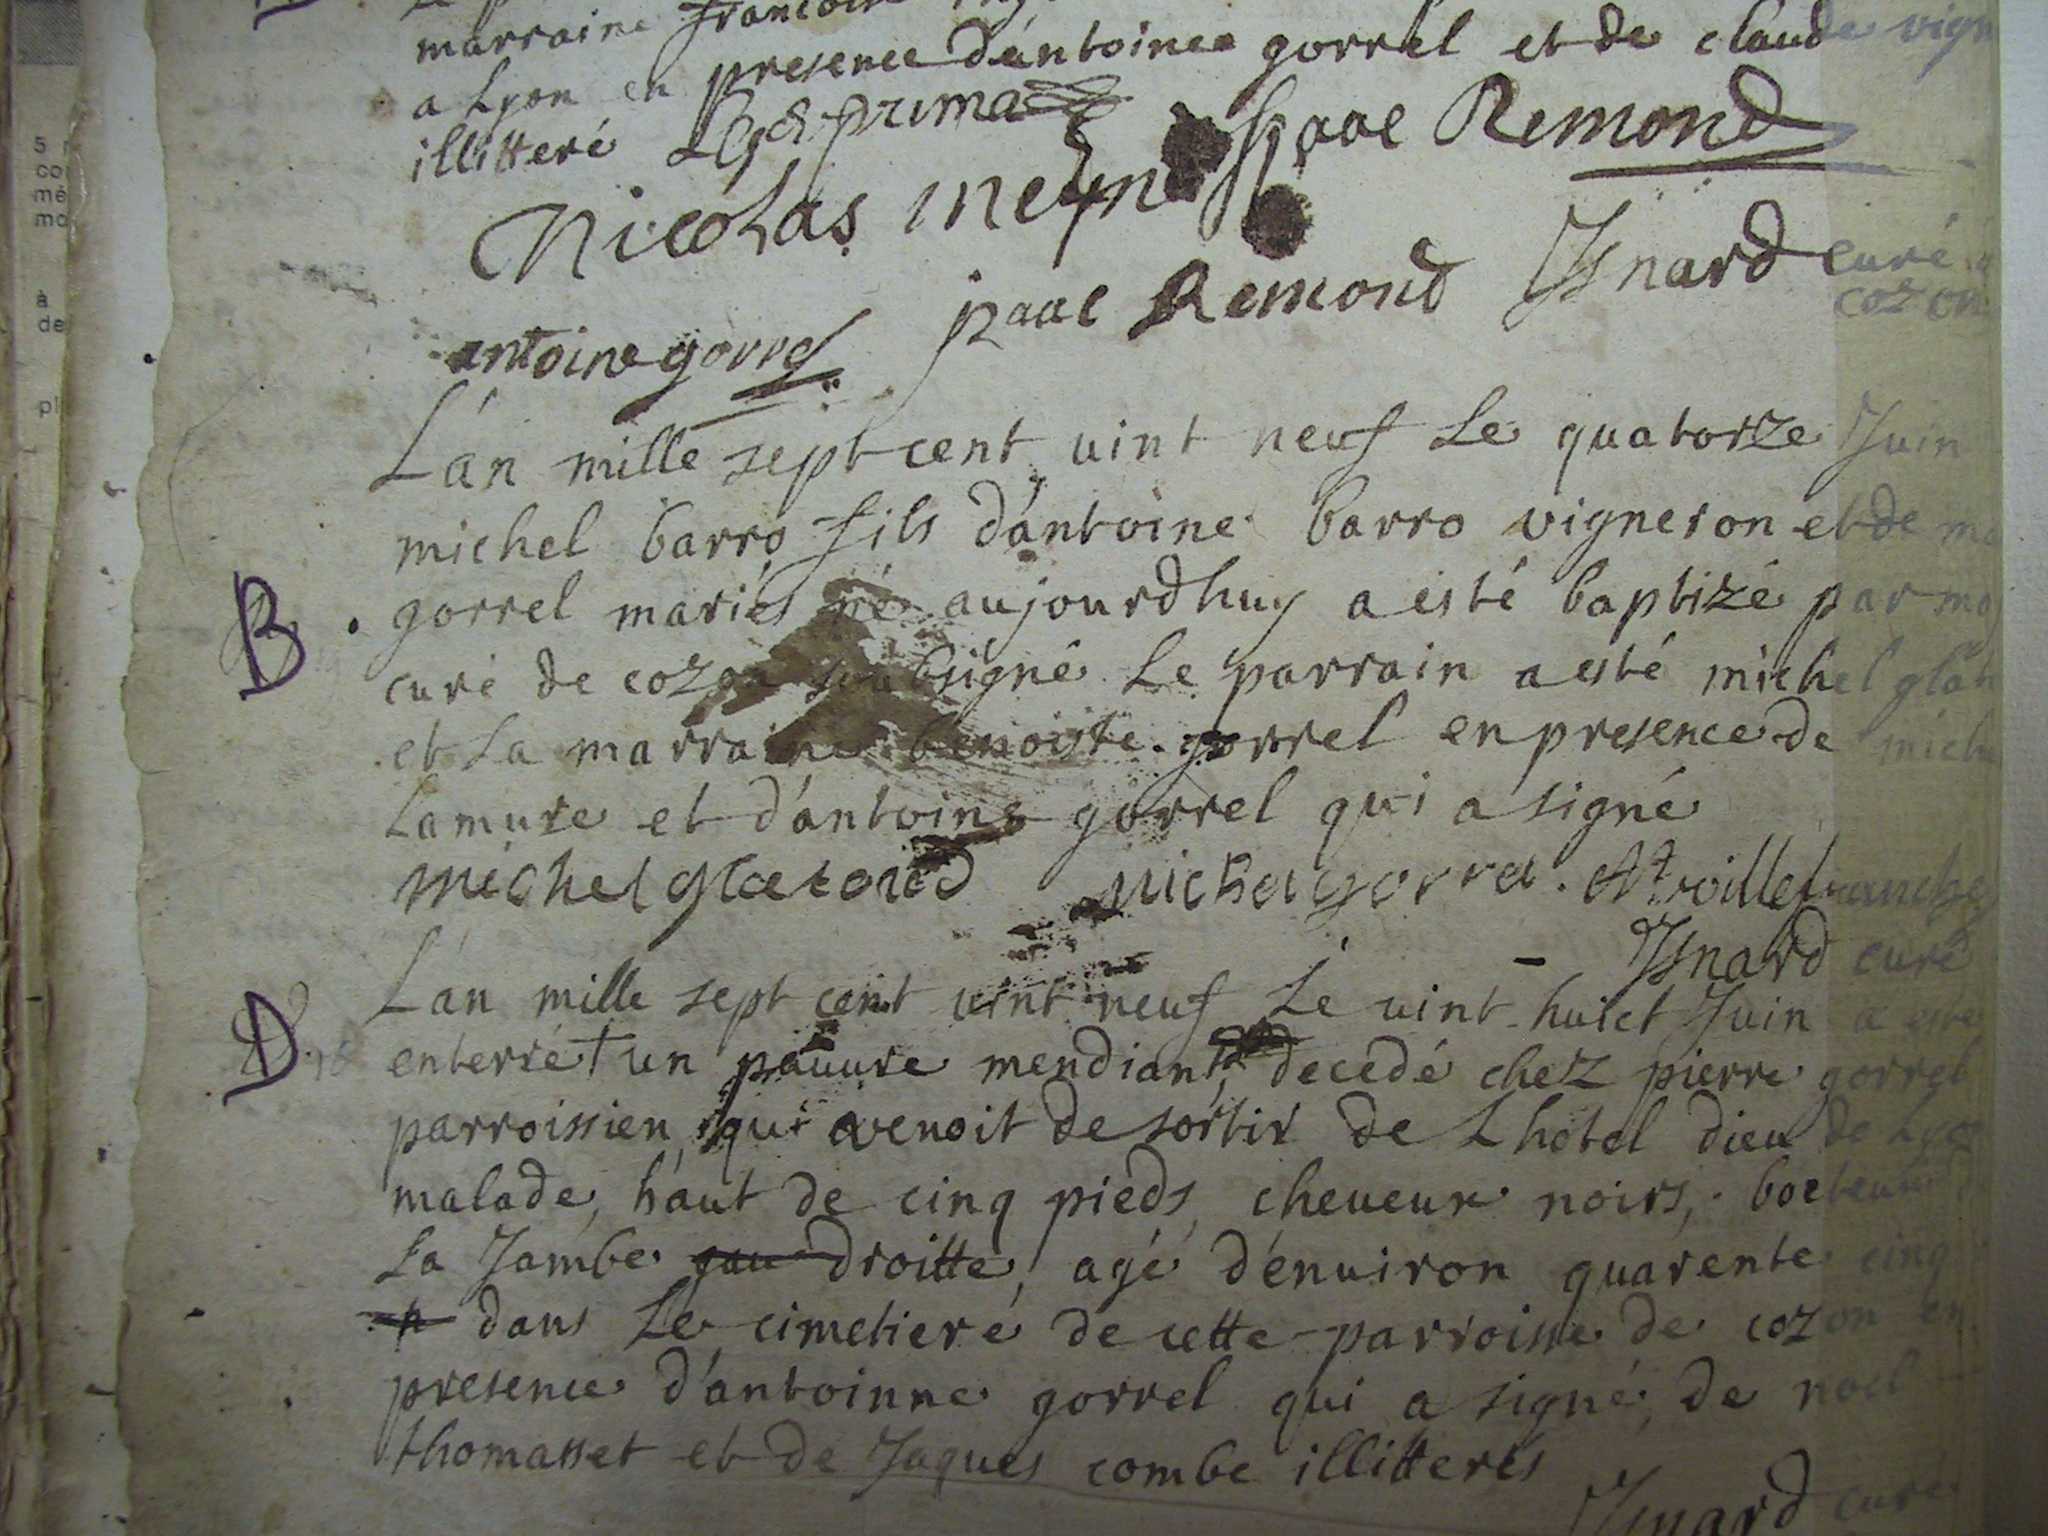 marraine francoise
a Lyon en presence d'antoinea gorrel et de claude vign
illitteré prima
Nicolas meyn Isaac Remond
antoine gorrel Isaac Remond Isnard curé
cozon
L'an mille sept cent vint neuf Le quatorze Juin
michel barro fils d'antoine barro vigneron et de ma
B gorrel mariés né aujourdhuy a esté baptizé par moy
curé de cozon soubsigné Le parrain a esté michel glat
et La marraine benoiste gorrel en presence de miche
Lamure et d'antoine gorrel qui a signé
michel glatoud michel gorrel. At villefranche
Isnard curé
L'an mille sept cent vint neuf Le vint-huict Juin a esté
D enterré † un pauure mendiant, decedé chez pierre gorrel
parroissien, qui venoit de sortir de L'hotel dieu de Lyon
malade, haut de cinq pieds, cheueux noirs, boeteux de
La Jambe gau droitte, agé d'enuiron quarente cinq
dans Le cimetiere de cette parroisse de cozon en
presence d'antoinne gorrel qui a signé, de noel
thomasset et de Jaques combe illitterés
Isnard curé
5
co
mé
mo
à
de
pl